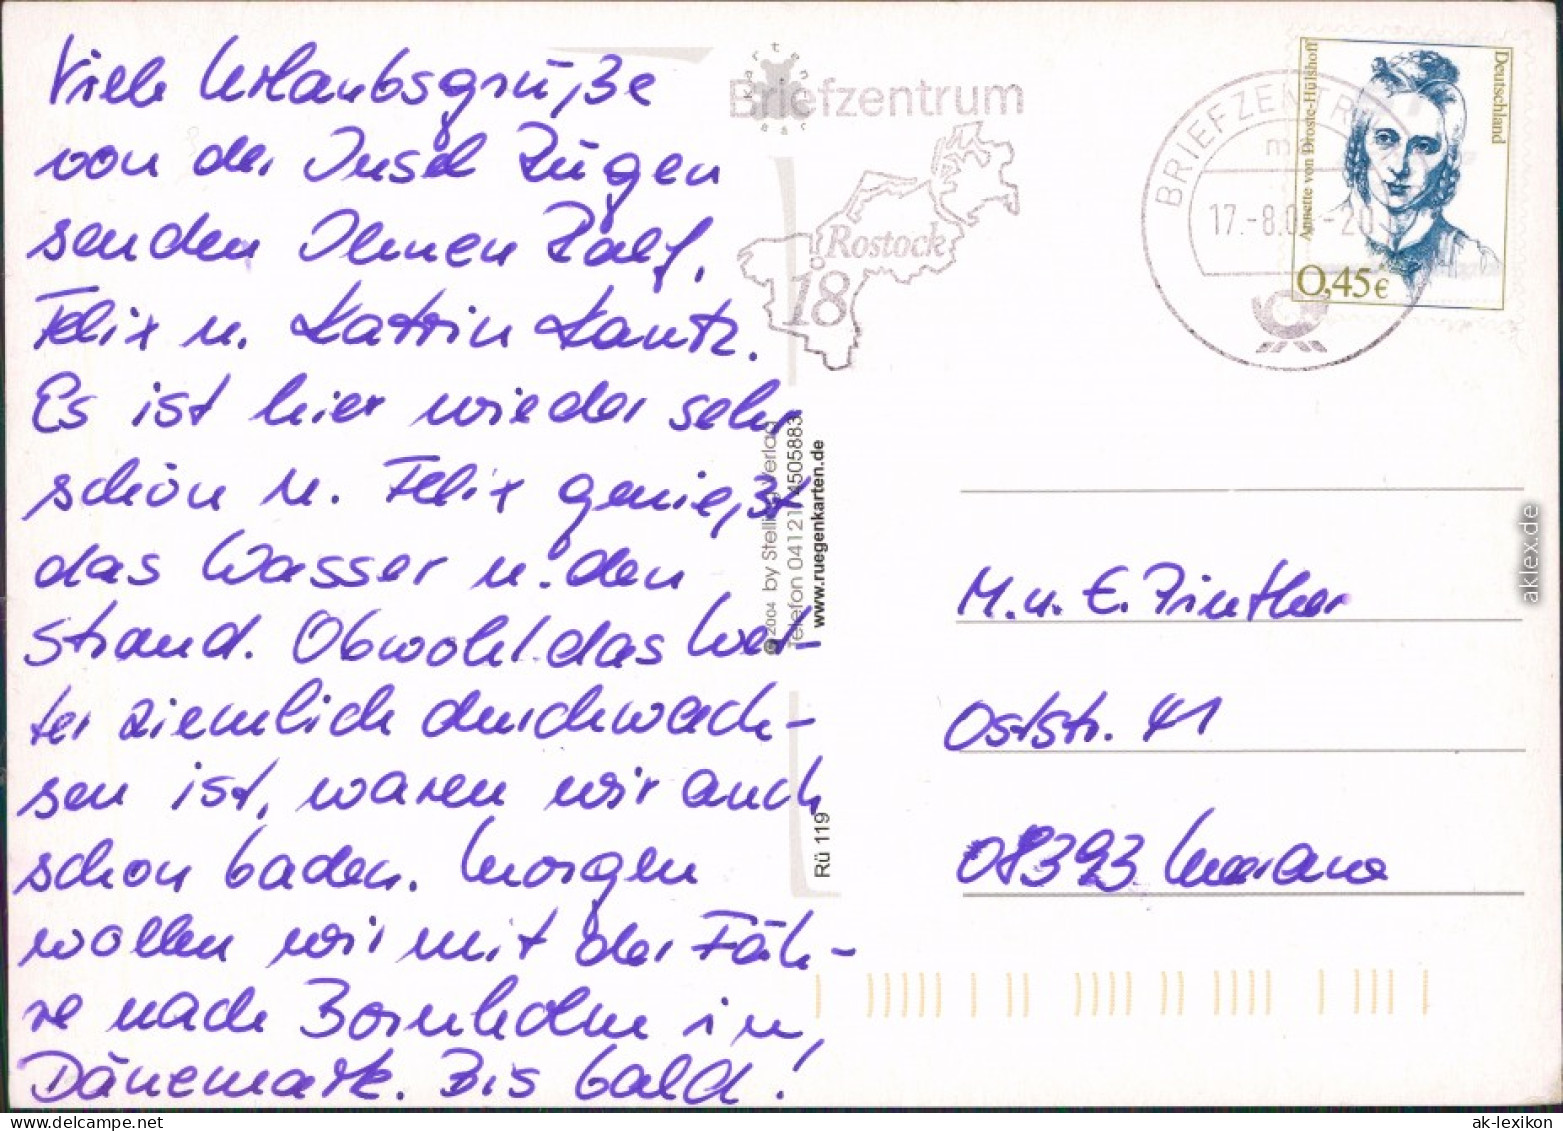 Viele Urlaubsgrüße
von der Insel Rügen
senden Ihnen Ralf,
Felix u. Katrin Kautz.
Es ist hier wieder sehr
schön u. Felix genießt
das Wasser u. den
Strand. Obwohl das Wet-
ter ziemlich durchwach-
sen ist, waren wir auch
schon baden. Morgen
wollen wir mit der Fäh-
re nach Bornholm in
Dänemark. Bis bald!
Briefzentrum
Rostock
18
©2004 by Stelling Verlag
Telefon 04121/4505883
www.ruegenkarten.de
Rü 119
BRIEFZENTRUM
17.-8.0
-20
Deutschland
Annette von Droste-Hülshoff
0,45€
M. u. E. Zinther
Oststr. 41
08393 Meerane
aklex.de
www.delcampe.net
ak-lexikon